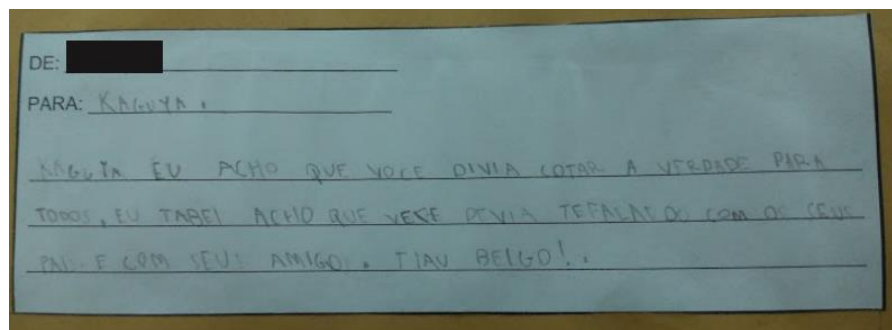 DE:
PARA: KAGUYA.
KAGUYA EU ACHO QUE VOCE DIVIA COTAR A VERDADE PARA
TODOS, EU TABEI ACHO QUE VECE DEVIA TEFALADO COM OS CEUS
PAIS E COM SEUS AMIGOS. TIAU BEIGO!.